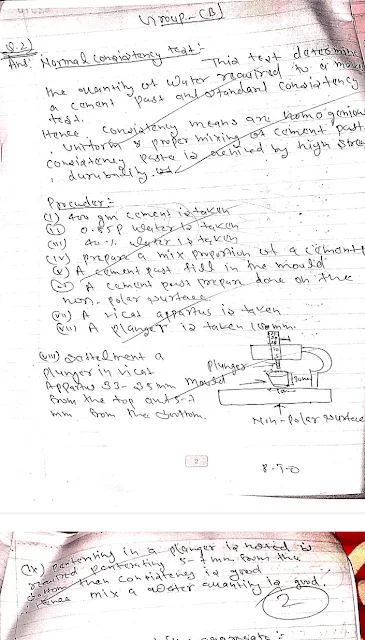 Group - CB]
Q.2)
Ans: Normal consistency test :-
This test determine
the quantity of water required to or mould
a cement past and standard consistency
test.
Hence consistency means are homogenious
, uniform & proper mixing of cement past
consistency paste is achived by high stre
, durability
Procuder :-
(i) 400 gm cement is taken
(ii) 0.85P water is taken
(iii) 40 % water is taken
(iv) prepare a mix proportion of a cement
(v) A cement past fill in the mould
A cement past prepare done on the
non. polar surface
(vii) A vicat appartus is taken
(viii) A plunger is taken 100mm.
(viii) a
plunger in vicat
Appartus 33-35mm
from the top and 5-7
mm from the bottom.
Plunger
mould
Non-Polar surface
2
(ix) in a plunger is noted is
required 5-7 mm from the
bottom then consistency is good
Hence mix a water quantity is good.
2